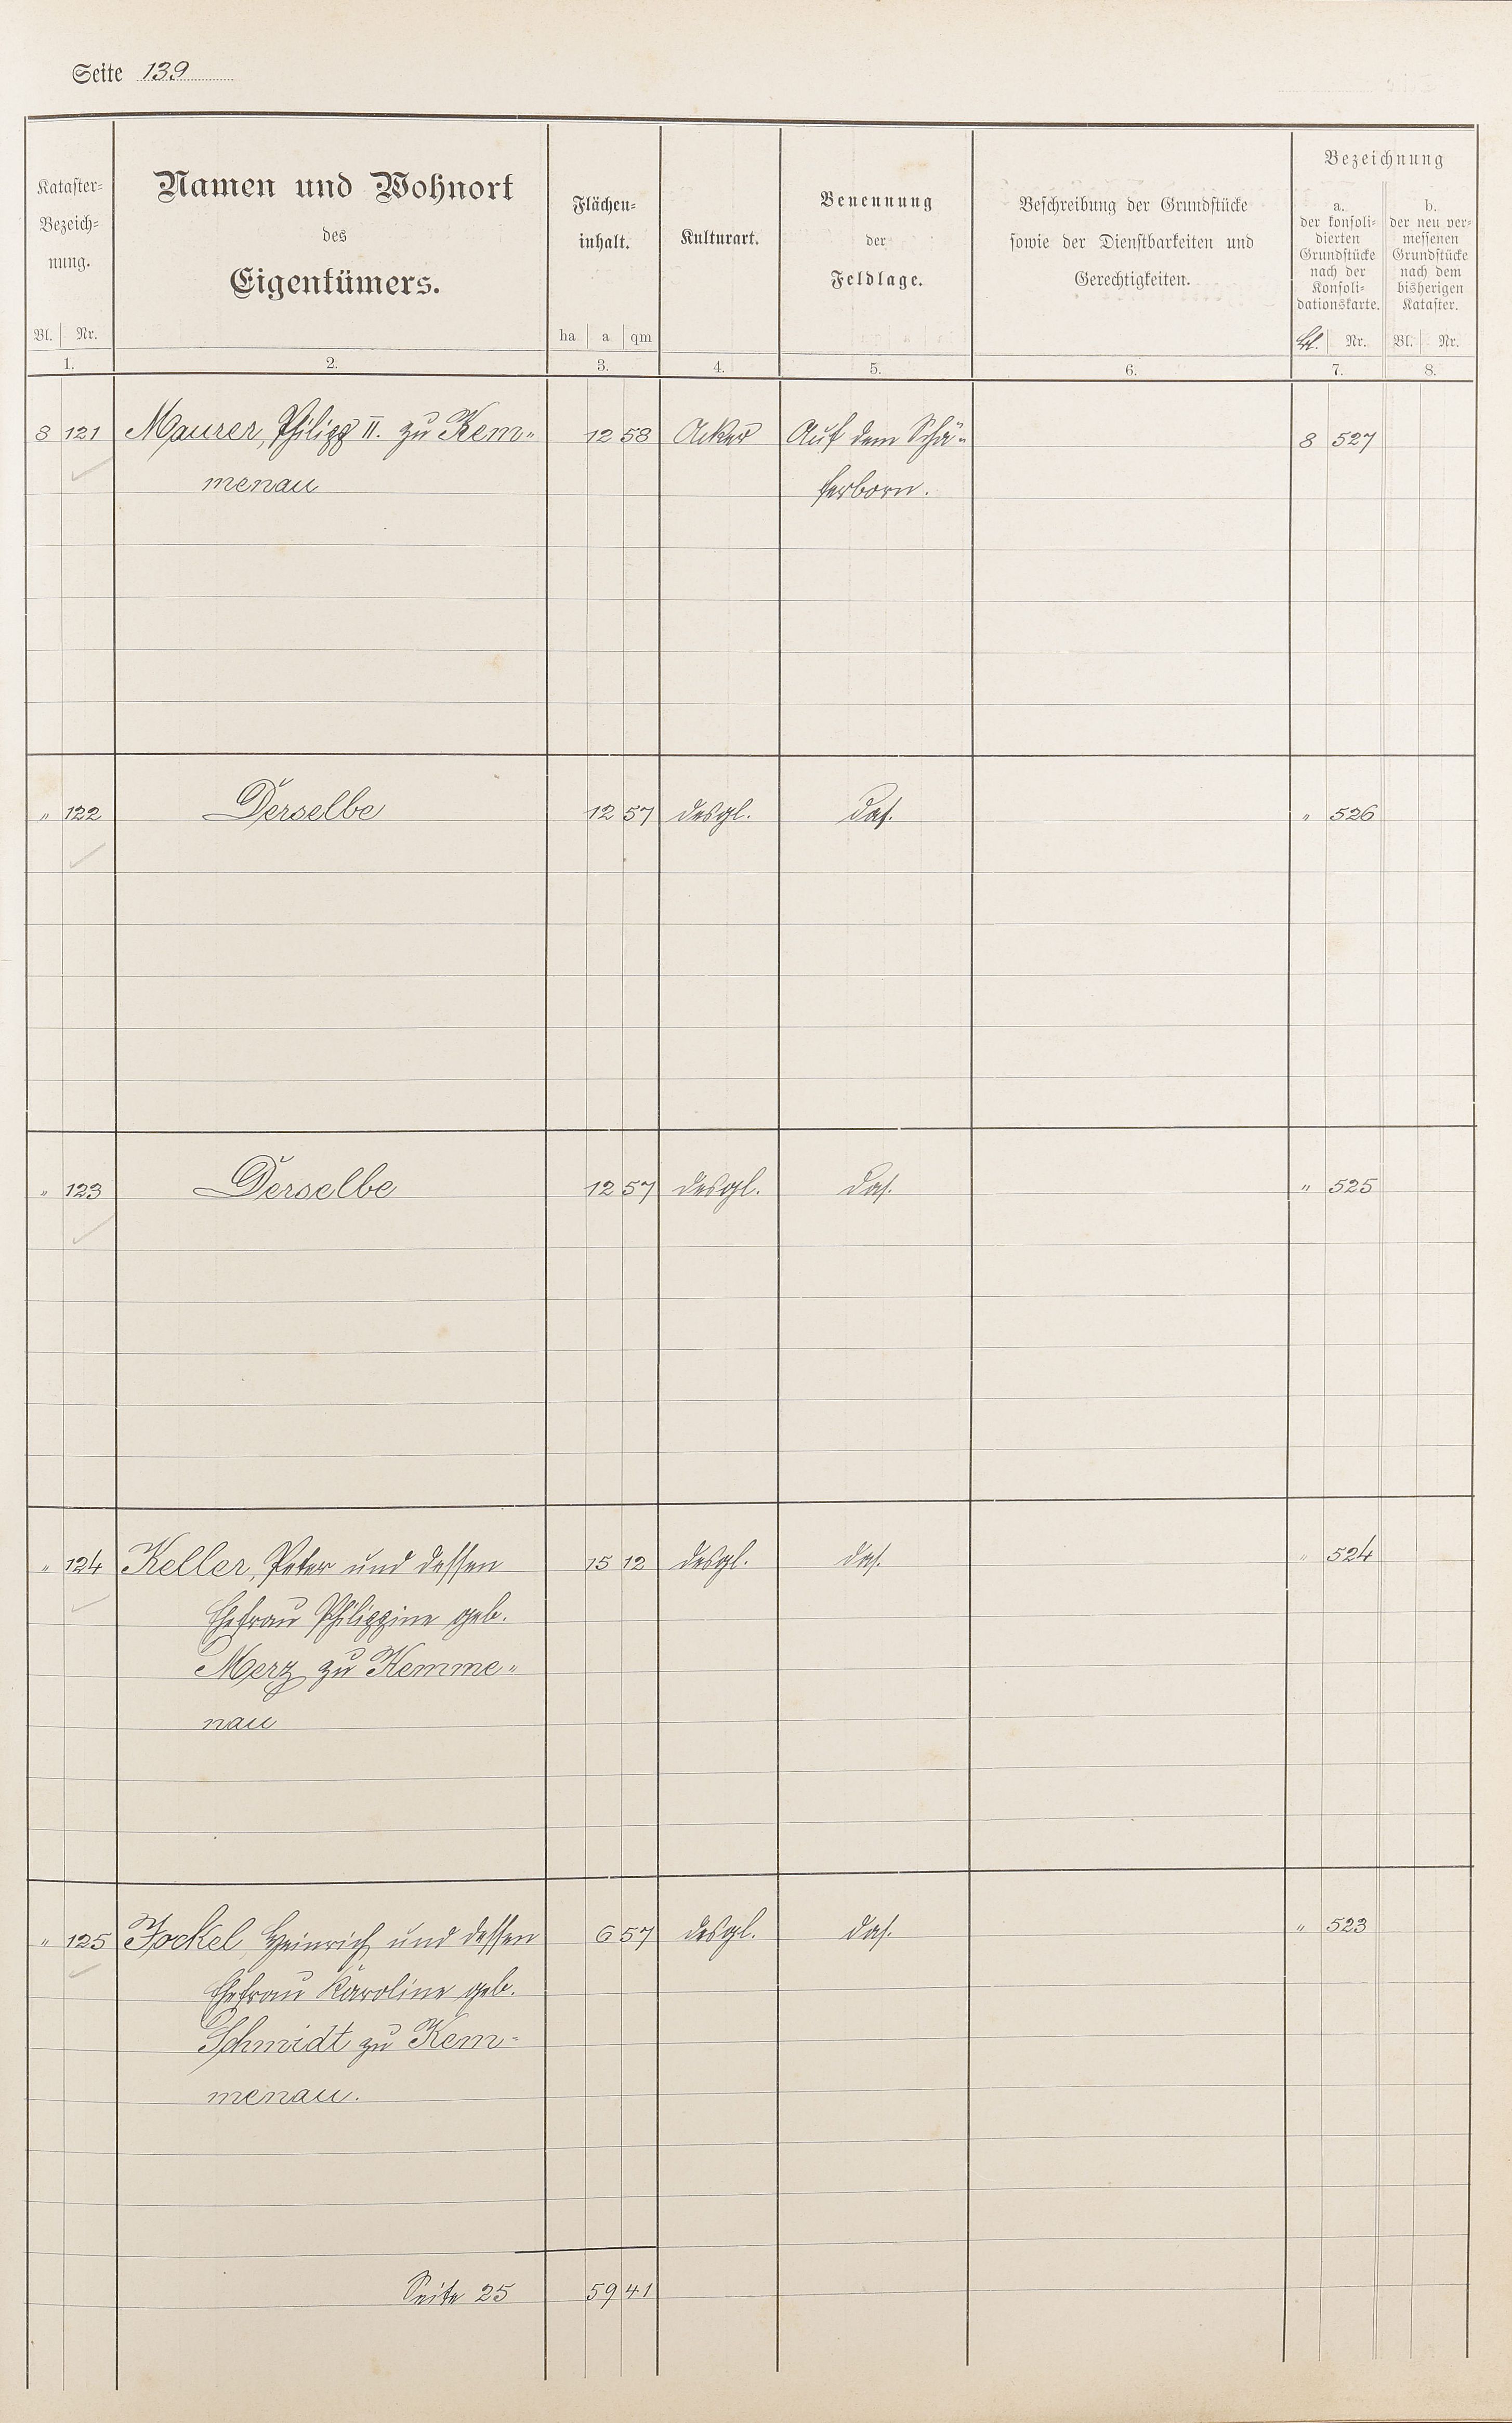 Seite 139
Kataster-
Bezeich-
nung.
Bl. Nr.
1.
Namen und Wohnort
des
Eigentümers.
2.
Flächen-
inhalt.
ha a qm
3.
Kulturart.
4.
Benennung
der
Feldlage.
5.
Beschreibung der Grundstücke
sowie der Dienstbarkeiten und
Gerechtigkeiten.
6.
Bezeichnung
a.
der konsoli-
dierten
Grundstücke
nach der
Konsoli-
dationskarte.
Nr.
7.
b.
der neu ver-
messenen
Grundstücke
nach dem
bisherigen
Kataster.
Bl. Nr.
8.
8 121 Maurer, Philipp II. zu Kem- 12 58 Acker Auf dem Schä- 8 527
menau ferborn.
" 122 Derselbe 12 57 desgl. das. " 526
" 123 Derselbe 12 57 desgl. das. " 525
" 124 Keller, Peter und dessen 15 12 desgl. das. " 524
Ehefrau Philippine geb.
Merz zu Kemme-
nau
" 125 Jockel Heinrich und dessen 6 57 desgl. das. " 523
Ehefrau Karoline geb.
Schmidt zu Kem-
menau.
Seite 25 59 41